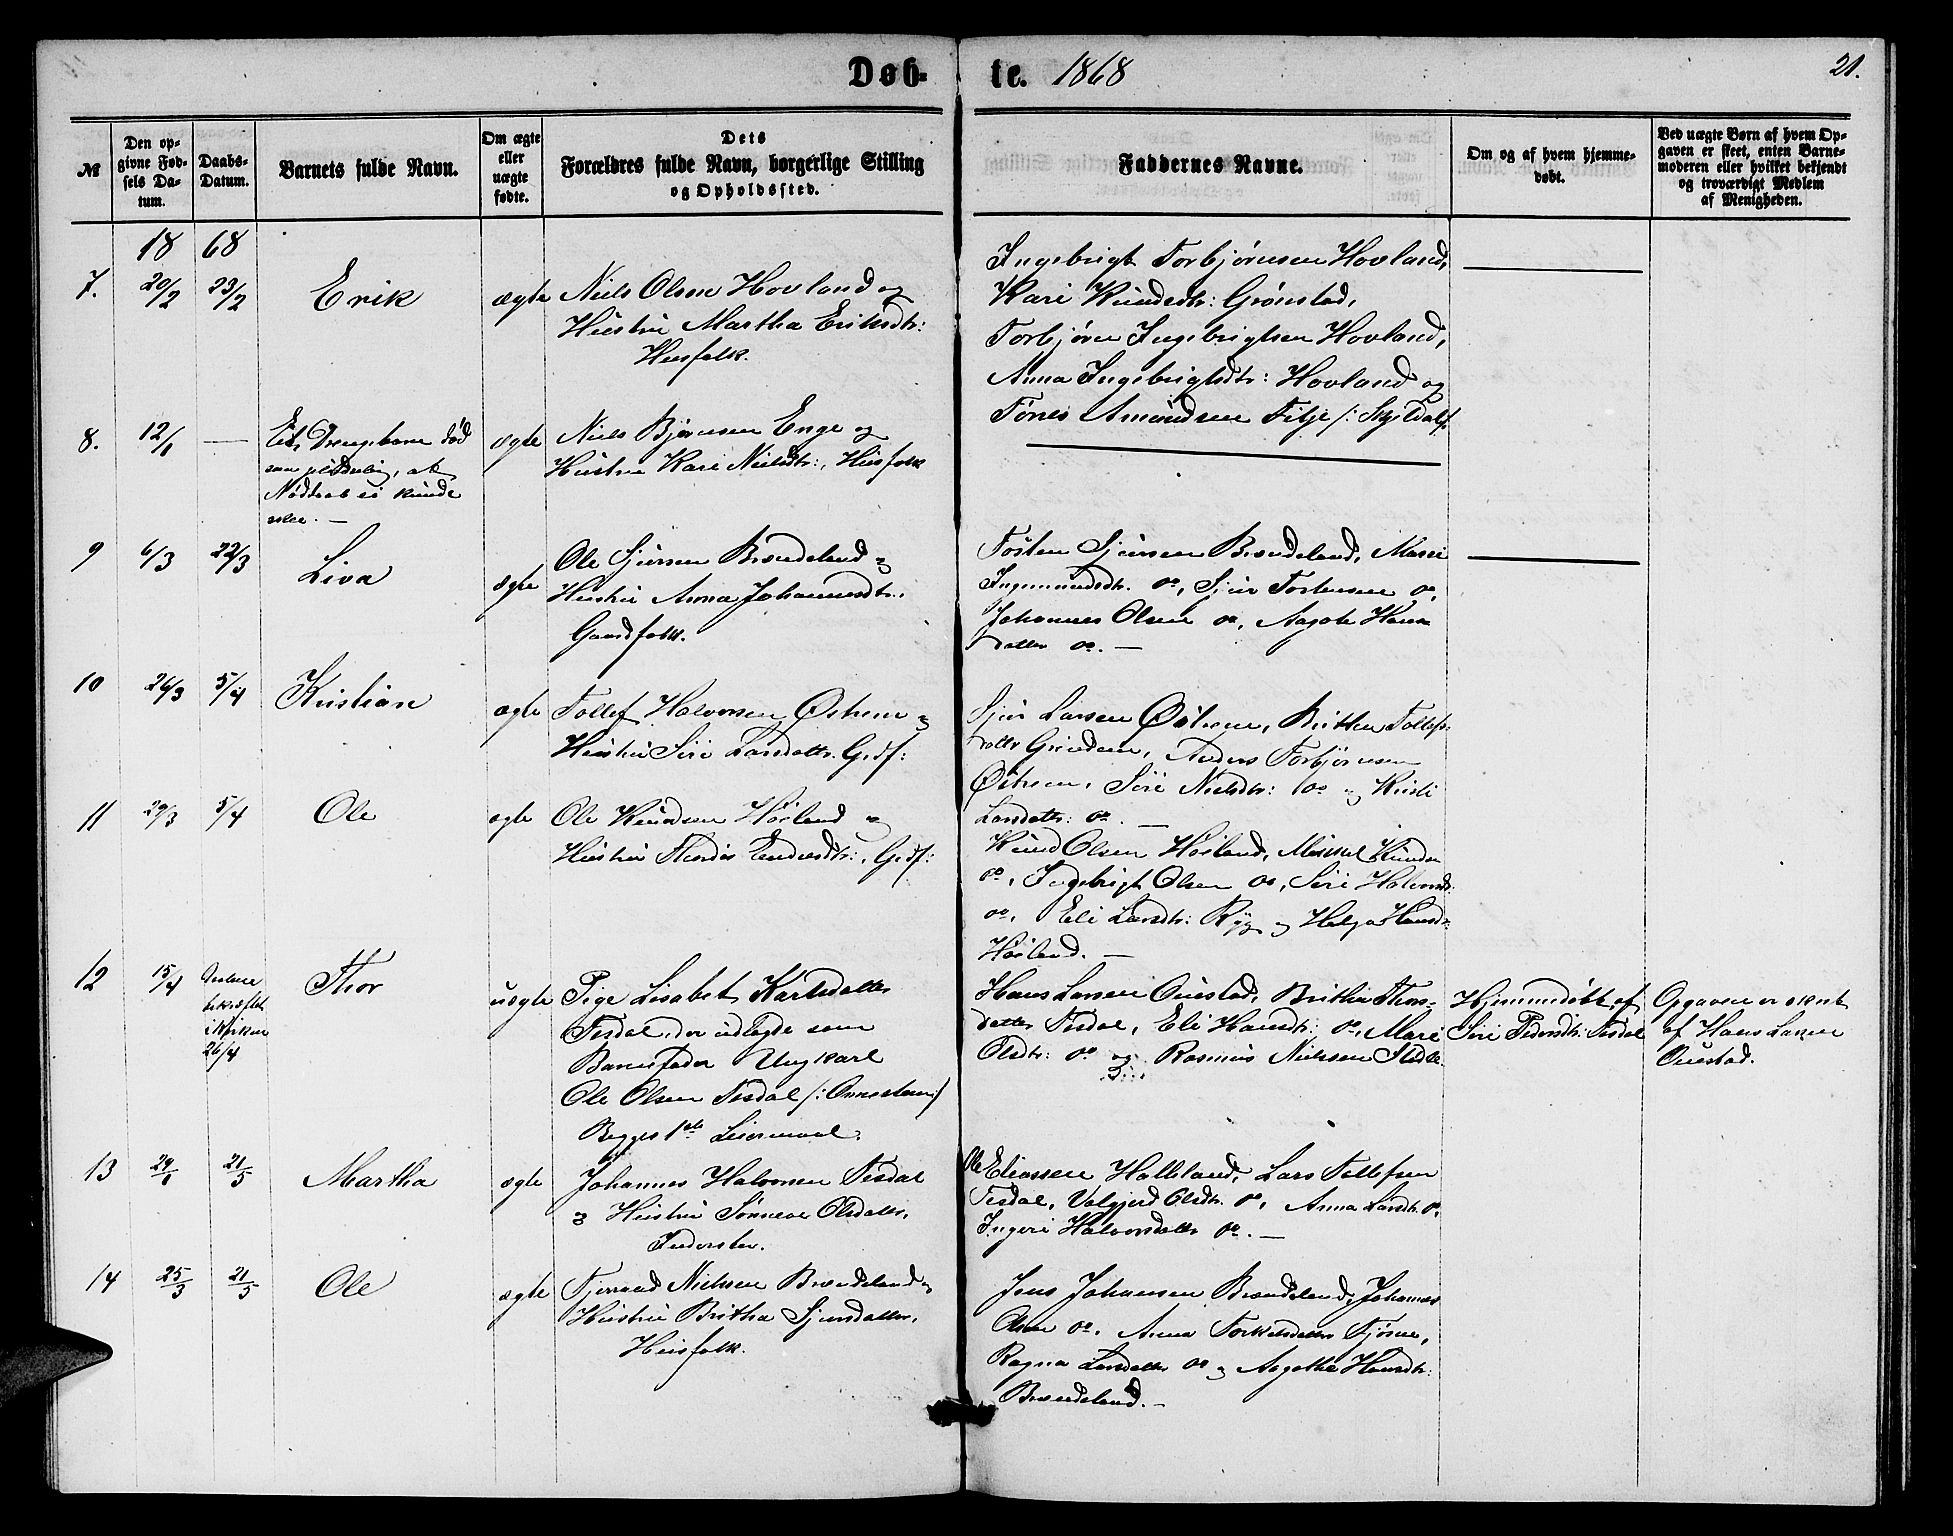 Døb-
te. 1868
21.
№
Den op-
givne Fød-
sels Da-
tum.
Daabs-
Datum.
Barnets fulde Navn.
Om ægte
eller
uægte
fødte.
Dets
Forældres fulde Navn, borgerlige Stilling
og Opholdssted.
Faddernes Navne.
Om og af hvem hjemme-
døbt.
Ved uægte Børn af hvem Op-
gaven er skeet, enten Barne-
moderen eller hvilket bekjendt
og troværdigt Medlem
af Menigheden.
18 68
7.
20/2
23/2
Erik
ægte
Niels Olsen Hovland og
Hustru Martha Eriksdtr:
Husfolk.
Ingebrigt Torbjørnsen Hovland,
Kari Knudsdtr: Grønstad,
Torbjørn Ingebrigtsen Hovland,
Anna Ingebrigtsdtr: Hovland og
Tønes Amundsen Fitje
8.
12/1
—
Et Drengebarn død
at
Nøddaab ei kunde
skee. —
ægte
Niels Bjørnsen Enge og
Hustru Kari Nielsdtr:, Husfolk
9
6/3
22/3
Liva
ægte
Ole Sjursen Brændeland og
Hustru Anna Johannesdtr.
Gaardfolk.
Tosten Sjursen Brændeland, Mari
Ingemundsdtr. do, Sjur Tostensen do,
Johannes Olsen do, Aagote Hans
datter do. —
10
26/3
5/4
Kristian
ægte
Tollef Halvorsen Østrem og
Hustru Siri Larsdatter. Grdf:
Sjur Larsen Østrem, Brithe Tollefs-
datter Grindem, Anders Torbjørnsen
Østrem, Siri Nielsdtr: do og Kirsti
Larsdatter: do. —
11
29/3
5/4
Ole
ægte
Ole Knudsen Høiland og
Hustru Thordis Endresdtr:, Grdf:
Knud Olsen Høiland, Mikkel Knudsen
do, Ingebrigt Olsen do, Siri Halvorsd:
do, Eli Larsdtr: Ryg og Helga Hansd-
Høiland. —
12
15/4
bekræftet
i Kirken
26/4
Thor
uægte
Pige Lisabet Karlsdatter
Tesdal, der udlagde som
Barnefader Ungkarl
Ole Olsen Tesdal
Begges 1ste Leiermaal.
Hans Larsen Ouestad, Brithe Thors-
datter Tesdal, Eli Hansdtr: do, Mari
Olsdtr: do og Rasmus Nielsen
Hjemmedøbt af
Siri Pedersdtr: Tesdal
Opgaven er skeet
af Hans Larsen
Ouestad.
13
21/5
Martha
ægte
Johannes Halvorsen Tesdal
og Hustru Sønneve Olsdatter,
Inderster.
Ole Eliassen Halleland, Lars Tollefsen
Tesdal, Valgjerd Olsdtr. do, Anna Larsdtr. do,
Ingeri Halvorsdatter do. —
14
25/3
21/5
Ole
ægte
Tjerand Nielsen Brændeland og
Hustru Britha Sjursdatter,
Husfolk.
Jens Johansen Brændeland, Johannes
Olsen do, Anna Torkelsdatter Fjøsne,
Ragna Larsdatter do og Aagothe Hansdtr:
Brændeland. —